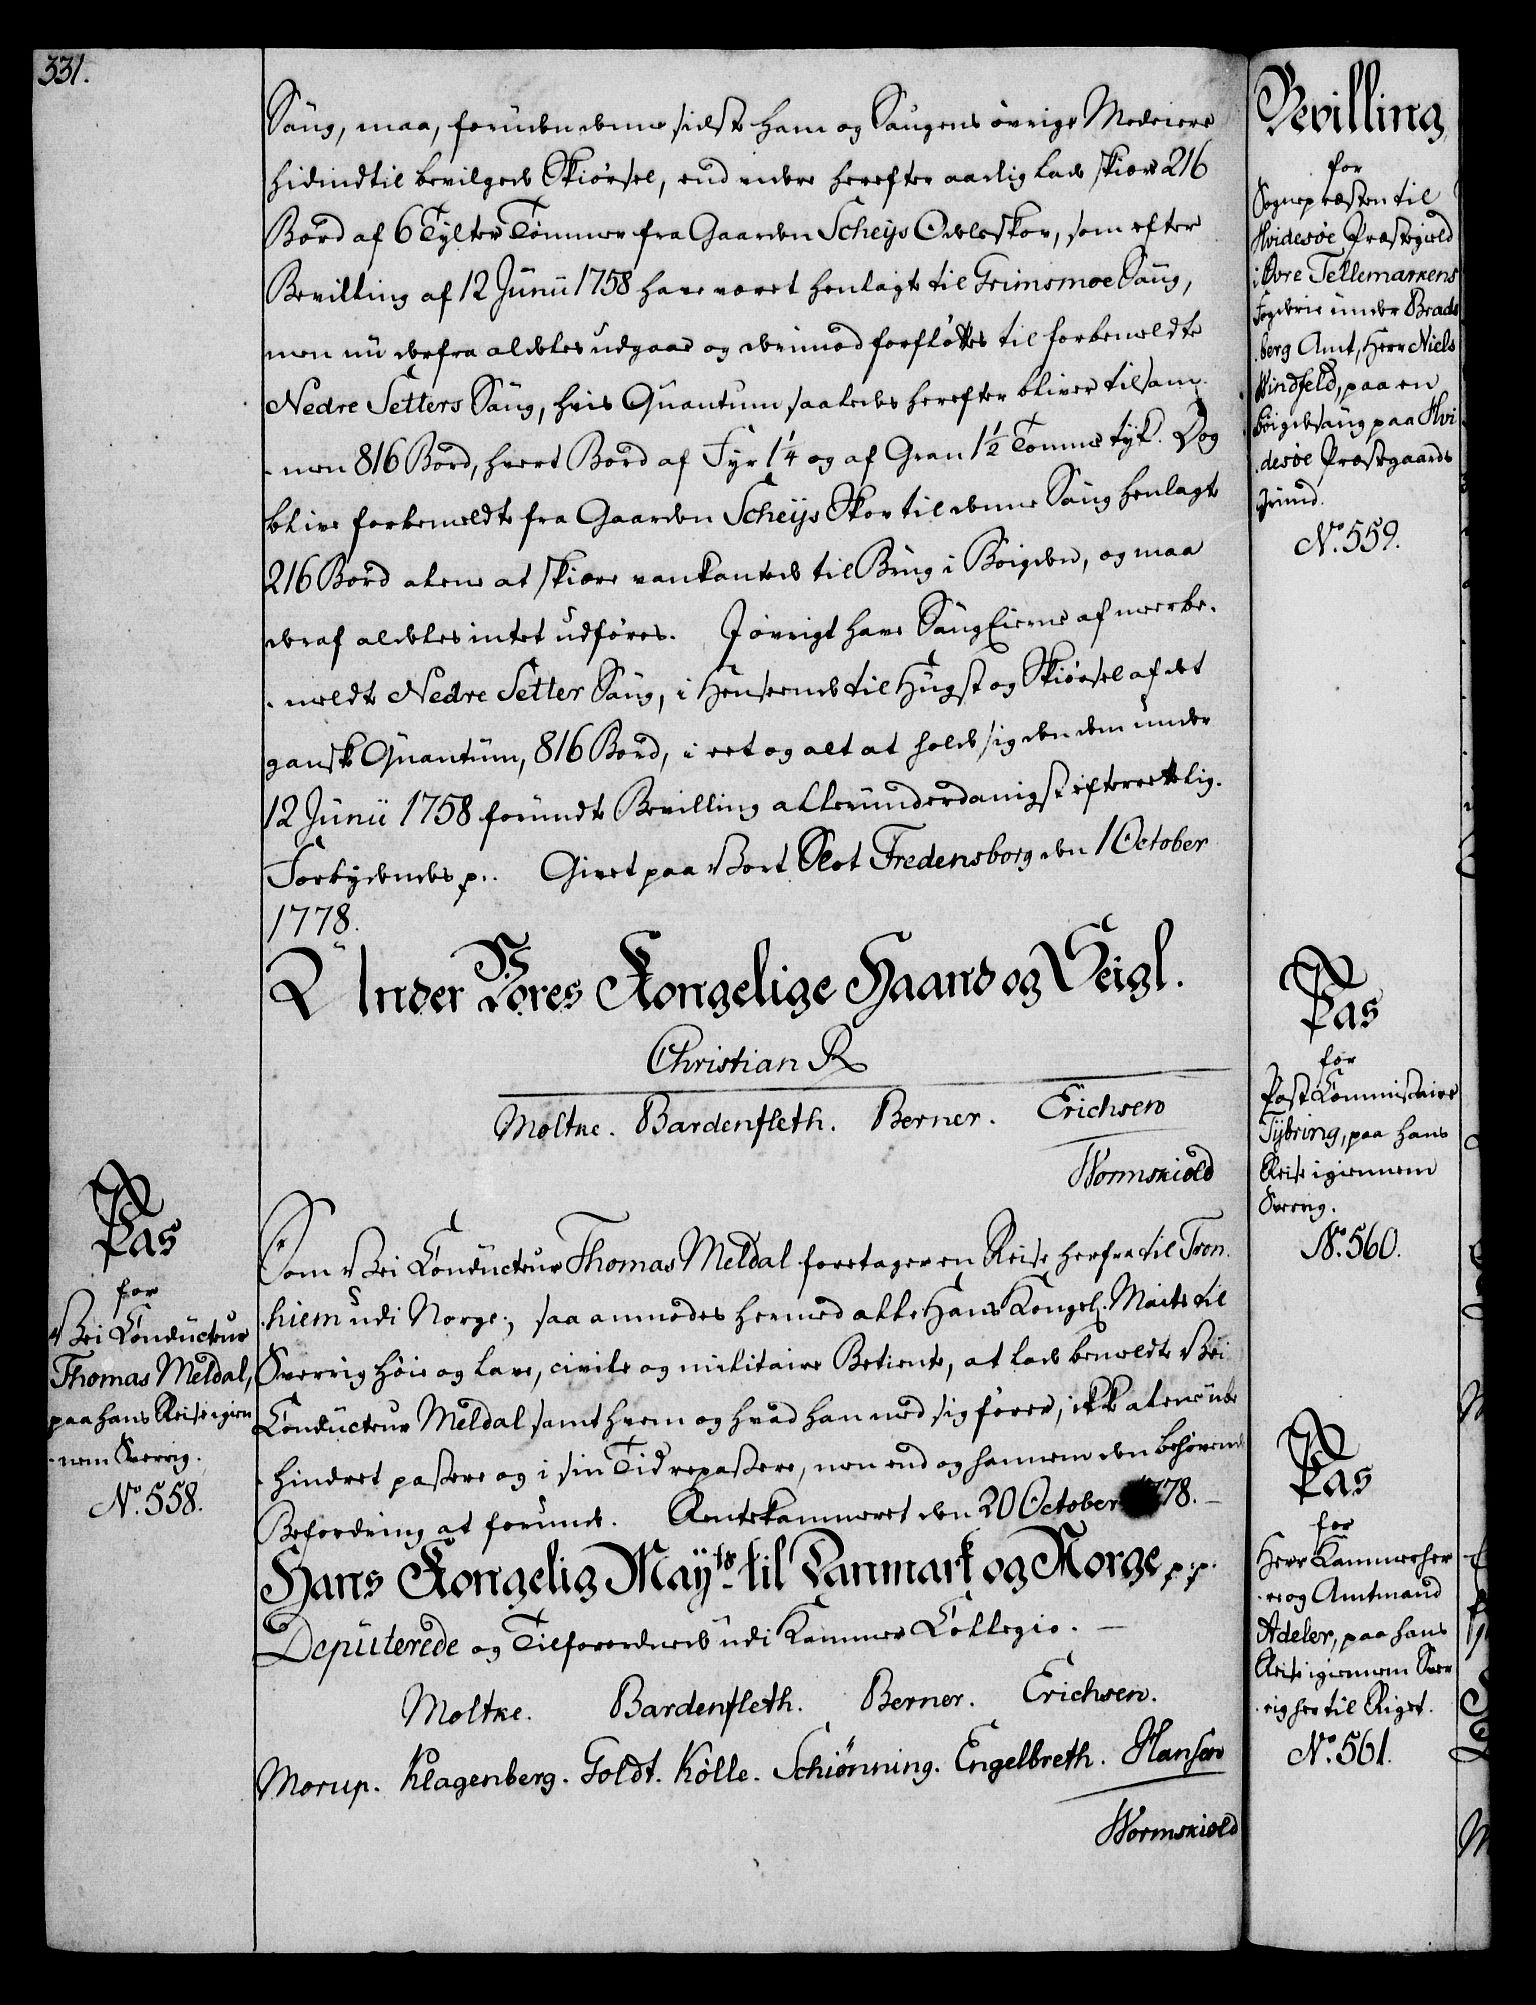 331.
Saug, maa, foruden denne sidst ham og Saugens øvrige Medeiere
hidindtil bevilgede Skiørsel, end videre herefter aarlig lade skiære 216
Bord af 6 Tylter Tømmer fra Gaarden Scheijs Odelsskov, som efter
Bevilling af 12 Junii 1758 have været henlagt til Grimsmoe Saug,
men nu derfra aldeles udgaae og derimod forfløttes til forbemeldte
Nedre Setters Saug, hvis Quantum saaledes herefter bliver tilsam-
-men 816 Bord, hvert Bord af Fyr 1¼ og af Gran 1½ Tomme tyk. Dog
blive forbemeldte fra Gaarden Scheijs Skov til denne Saug henlagte
216 Bord alene at skiære vankantede til Brug i Bøigden, og maa
deraf aldeles intet udføres. I øvrigt have SaugEierne af meerbe-
-meldte Nedre Setter Saug, i Henseende til Hugst og Skiørsel af det
ganske Quantum, 816 Bord, i eet og alt at holde sig den dem under
12 Junii 1758 forundte Bevilling allerunderdanigst efterrettelig.
Forbydendes p.. Givet paa Vort Slot Fredensborg den 1 October
1778.
Under Vores Kongelige Haand og Seigl.
Christian R
Moltke. Bardenfleth. Berner. Erichsen
Wormskiold
Pas
for
Vei Conducteur
Thomas Meldal,
paa hans Reise igien-
-nem Sverrig.
No. 558.
Som Vei Conducteur Thomas Meldal foretager en Reise herfra til Tron-
-hiem udi Norge; saa anmodes hermed alle Hans Kongel. Maits til
Sverrig høie og lave, civile og militaire Betiente, at lade bemeldte Vei
Conducteur Meldal samt hvem og hvad han med sig fører, ikke alene ube-
-hindret passere og i sin Tid repassere, men end og hannem den behøvende
Befordring at forunde. Rentekammeret den 20 October 1778.
Hans Kongelig Mayts. til Danmark og Norge p. p.
Deputerede og Tilforordnede udi Kammer Collegio.
Moltke. Bardenfleth. Berner. Erichsen.
Morup. Klagenberg. Goldt. Kölle. Schiønning. Engelbreth. Hansen
Wormskiold
Bevilling
for
Sognepræsten til
Hvidesøe Præstegield
i Øvre Tellemarkens
Fogderie under Brads-
-berg Amt, Herr Niels
Windfeld, paa en
Bøigdesaug paa Hvi-
-desøe Præstegaards
Grund.
No. 559.
Pas
for
Post Commissaire
Tybring, paa hans
Reise igiennem
Sverrig.
No. 560.
Pas
for
Herr Kammerher-
-re og Amtmand
Adeler, paa hans
Reise igiennem Sver-
-rig her til Riget.
No. 561.